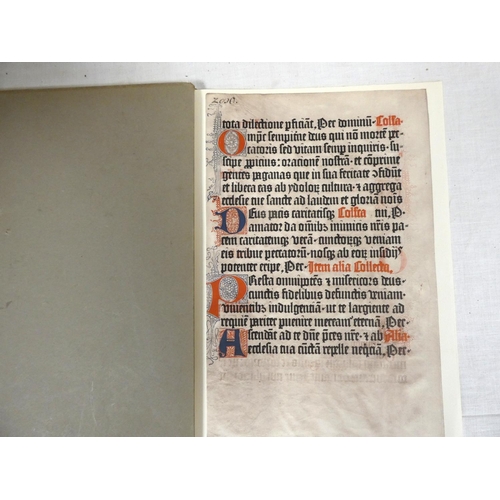 tota dilectione p̱ficiāt, Per dominū· Coll̄a
Omp̄s sempiterne deus qui nō mortē pe⸗
catoris sed vitam semp̱ inquiris· su⸗
scipe p̱picius: orationem nostrā· et
gentes paganas
et libera eas ab ydoloꝝ cultura· & aggrega
ecclesie tue sancte ad laudem et gloriā nois
Deus pacis caritatisqꝫ Collecta tui, P̱
amator da oībꝰ inimicis nr̄is pa⸗
cem caritatemqꝫ verā· cunctorūqꝫ veniam
eis tribue peccatorū· nosqꝫ ab eorꝝ insidijs
potenter eripe, Per· Item alia Collecta,
Presta omnipotēs & misericors deus·
cunctis fidelibus defunctis veniam·
viuentibus indulgentiā· ut te largiente ad
requiē pariter puenire mereant̄ eternā, Per·
Ascendāt ad te dn̄e p̱ces nr̄e· & ab Alia·
ecclesia tua cunctā repelle neq̄tiā, Per·